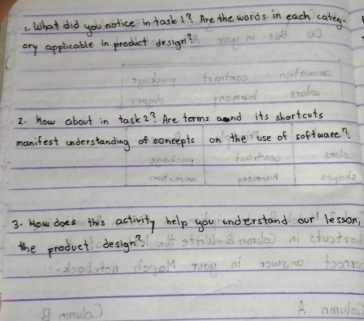 1. What did you notice in task 1? Are the words in each categ-
ory applicable in product design?
2. How about in task 2? Are terms and its shortcuts
manifest understanding of concepts on the use of software?
3. How does this activity help you understand our lesson,
the product design?